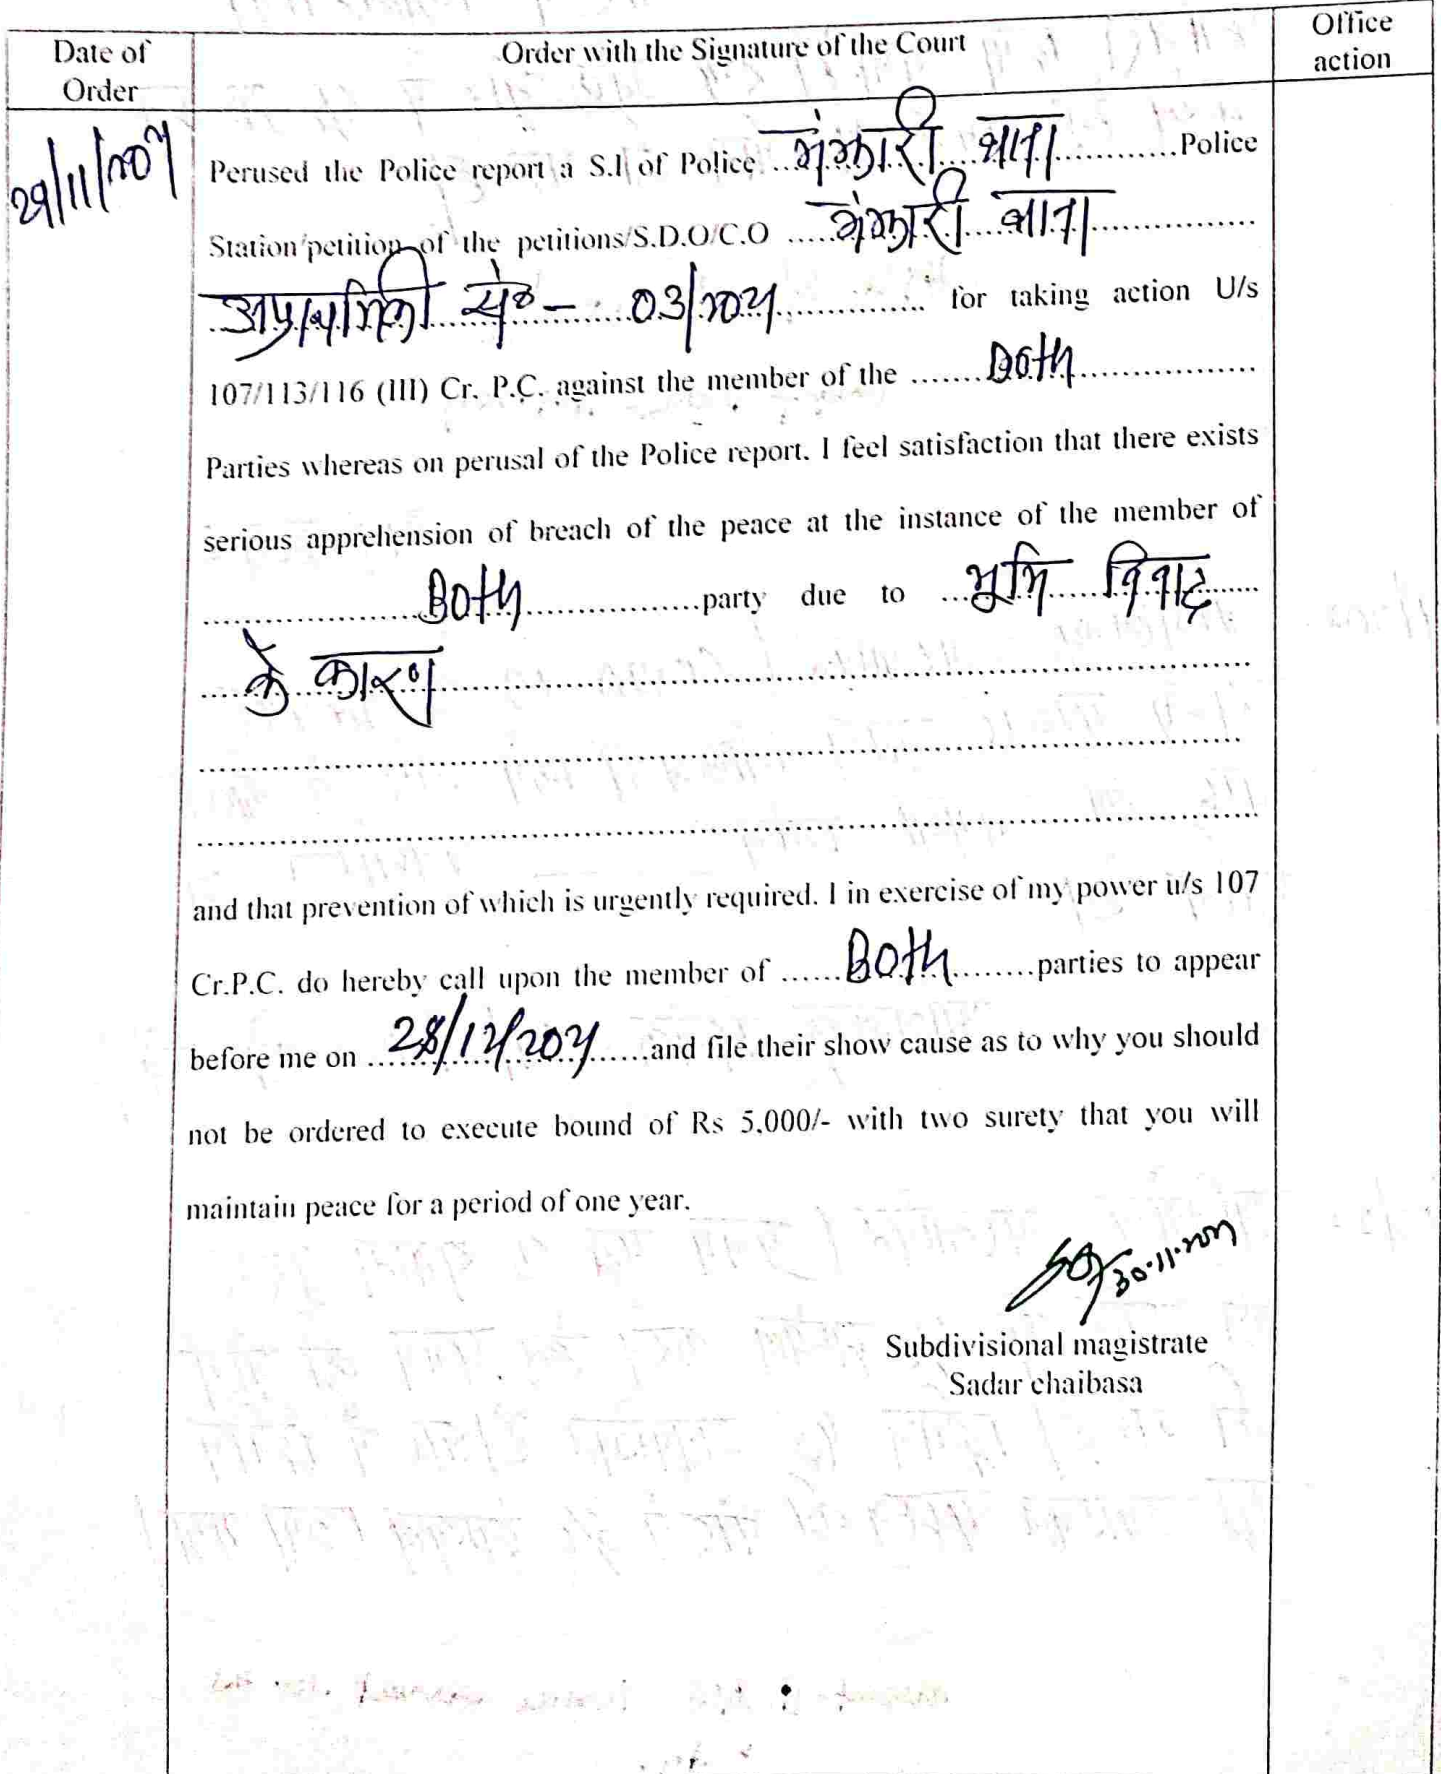 Date of Order
Order with the Signature of the Court
Office action
29/11/2021
Perused the Police report a S.I of Police ...मंझारी थाना............Police
Station/petition of the petitions/S.D.O/C.O .....मंझारी थाना................
अप्राथमिकी सं०- 03/2021 ............... for taking action U/s
107/113/116 (III) Cr. P.C. against the member of the .......Both...................
Parties whereas on perusal of the Police report. I feel satisfaction that there exists
serious apprehension of breach of the peace at the instance of the member of
......................Both..................party due to ...भूमि विवाद......
.....के कारण..........................................................................
and that prevention of which is urgently required. I in exercise of my power u/s 107
Cr.P.C. do hereby call upon the member of ......Both.........parties to appear
before me on ...28/12/2021......and file their show cause as to why you should
not be ordered to execute bound of Rs 5,000/- with two surety that you will
maintain peace for a period of one year.
30.11.2021
Subdivisional magistrate
Sadar chaibasa